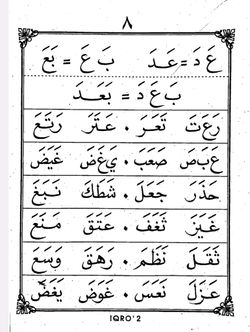 ٨
عَ دَ = عَدَ بَ عَ = بَعَ
بَ عَ دَ = بَعَدَ
رَعَتَ تَعَرَ . عَتَرَ رَتَعَ
عَبَصَ صَعَبَ . يَغَضَ غَيَضَ
حَذَرَ جَعَلَ . شَطَكَ نَبَغَ
غَيَرَ ثَغَفَ . عَتَقَ مَنَعَ
ثَقَلَ نَظَمَ . رَهَقَ وَسَعَ
عَزَلَ نَعَسَ . عَوَضَ يَغَضَ
IQRO'2